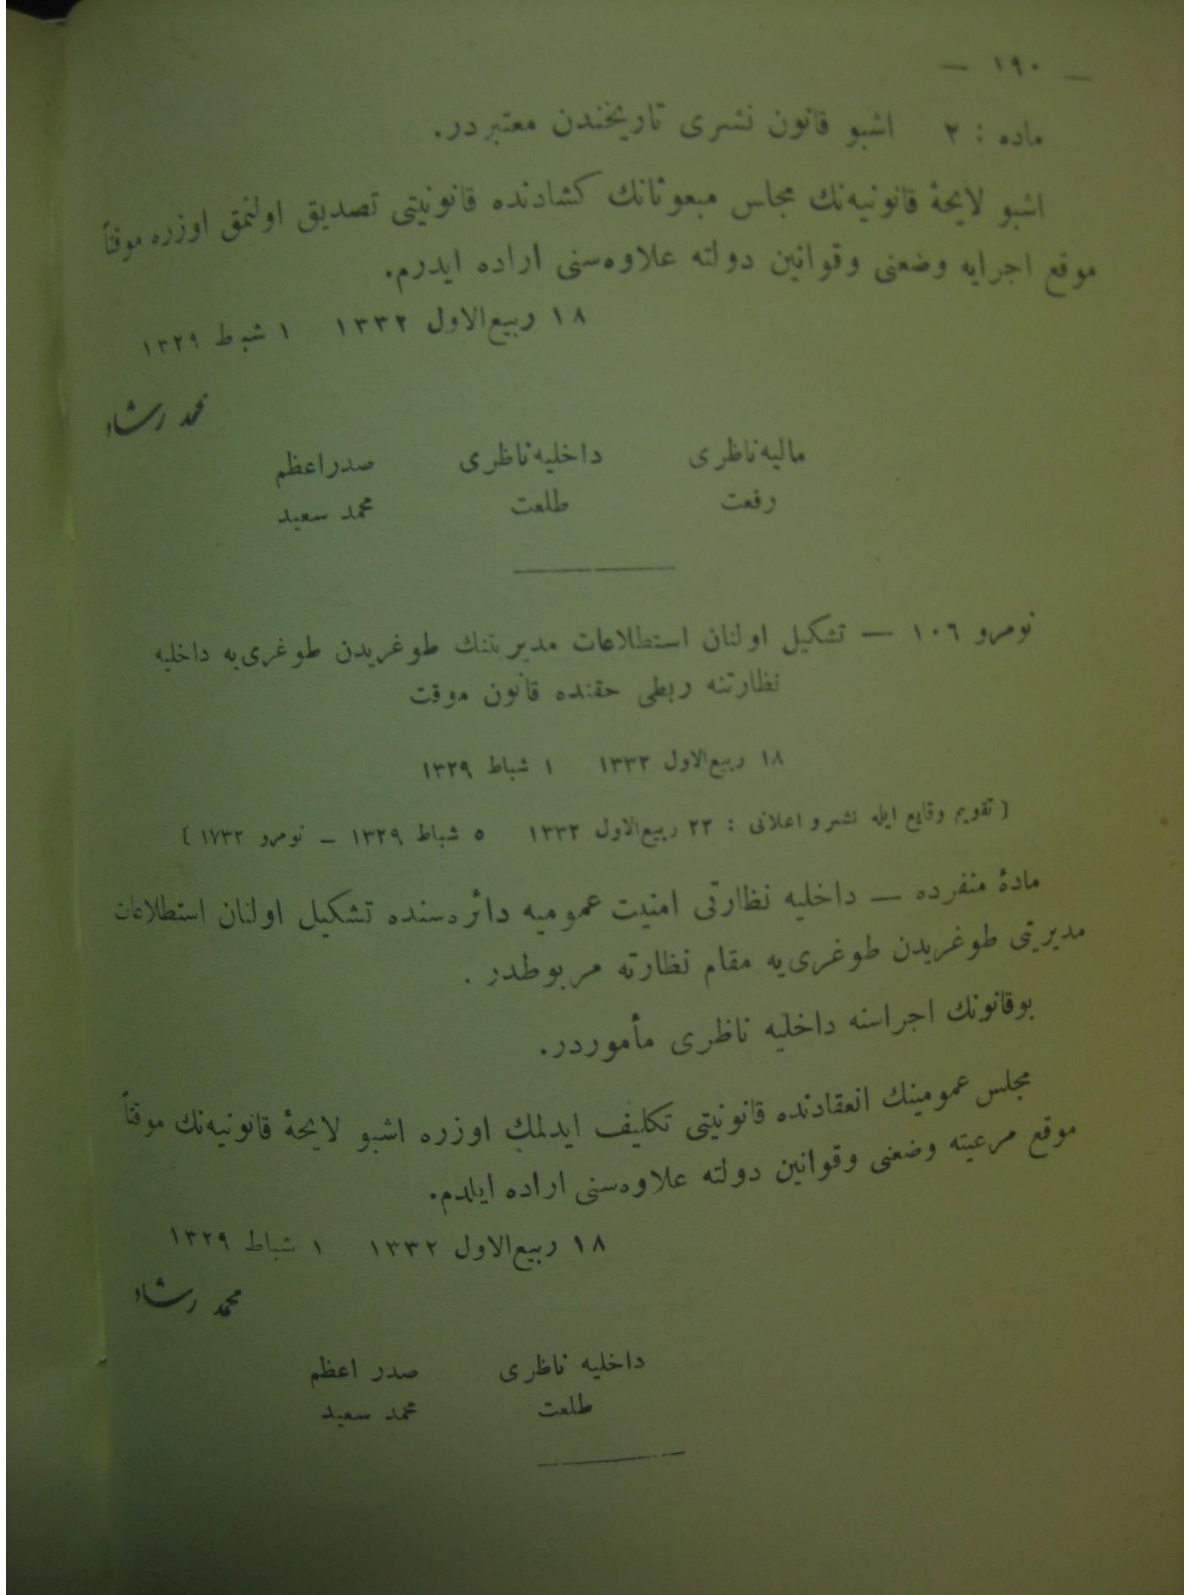 — ١٩٠ —
ماده : ٢ اشبو قانون نشرى تاريخندن معتبردر.
اشبو لايحۀ قانونيه‌نك مجلس مبعوثانك كشادنده قانونيتى تصديق اولنمق اوزره موقتاً
موقع اجرايه وضعنى وقوانين دولته علاوه‌سنى اراده ايدرم.
١٨ ربيع‌الاول ١٣٣٢ ١ شباط ١٣٢٩
محمد رشاد
ماليه ناظرى داخليه ناظرى صدراعظم
رفعت طلعت محمد سعيد
نومرو ١٠٦ — تشكيل اولنان استطلاعات مديريتنك طوغريدن طوغرى‌يه داخليه
نظارتنه ربطى حقنده قانون موقت
١٨ ربيع‌الاول ١٣٣٢ ١ شباط ١٣٢٩
[ تقويم وقايع ايله نشر و اعلانى : ٢٢ ربيع‌الاول ١٣٣٢ ٥ شباط ١٣٢٩ — نومرو ١٧٣٢ ]
مادۀ منفرده — داخليه نظارتى امنيت عموميه دائره‌سنده تشكيل اولنان استطلاعات
مديريتى طوغريدن طوغرى‌يه مقام نظارته مربوطدر .
بوقانونك اجراسنه داخليه ناظرى مأموردر.
مجلس عمومينك انعقادنده قانونيتى تكليف ايدلمك اوزره اشبو لايحۀ قانونيه‌نك موقتاً
موقع مرعيته وضعنى وقوانين دولته علاوه‌سنى اراده ايلدم.
١٨ ربيع‌الاول ١٣٣٢ ١ شباط ١٣٢٩
محمد رشاد
داخليه ناظرى صدر اعظم
طلعت محمد سعيد